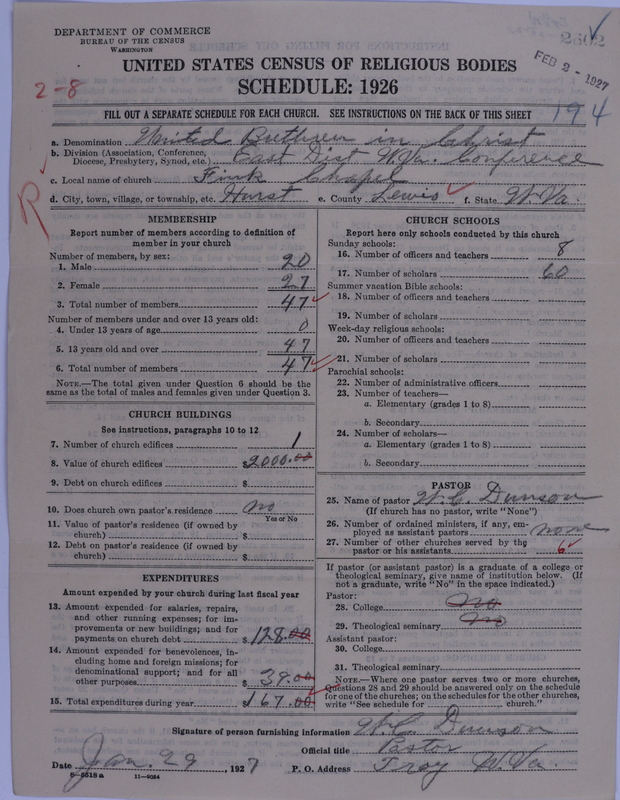 DEPARTMENT OF COMMERCE
BUREAU OF THE CENSUS
WASHINGTON
2502
FEB 2 - 1927
UNITED STATES CENSUS OF RELIGIOUS BODIES
SCHEDULE: 1926
2-8
FILL OUT A SEPARATE SCHEDULE FOR EACH CHURCH. SEE INSTRUCTIONS ON THE BACK OF THIS SHEET
194
a. Denomination United Brethren in Christ
b. Division (Association, Conference, Diocese, Presbytery, Synod, etc.) East Dist W.Va. Conference
c. Local name of church Fink Chapel
d. City, town, village, or township, etc. Hurst e. County Lewis f. State W. Va.
R
MEMBERSHIP
Report number of members according to definition of
member in your church
Number of members, by sex:
1. Male 20
2. Female 27
3. Total number of members 47
Number of members under and over 13 years old:
4. Under 13 years of age 0
5. 13 years old and over 47
6. Total number of members 47
NOTE.—The total given under Question 6 should be
same as the total of males and females given under Question 3.
CHURCH BUILDINGS
See instructions, paragraphs 10 to 12
7. Number of church edifices 1
8. Value of church edifices $2000.00
9. Debt on church edifices $
10. Does church own pastor's residence no
Yes or No
11. Value of pastor's residence (if owned by
church) $
12. Debt on pastor's residence (if owned by
church) $
EXPENDITURES
Amount expended by your church during last fiscal year
13. Amount expended for salaries, repairs,
and other running expenses; for im-
provements or new buildings; and for
payments on church debt $128.00
14. Amount expended for benevolences, in-
cluding home and foreign missions; for
denominational support; and for all
other purposes $39.00
15. Total expenditures during year $167.00
CHURCH SCHOOLS
Report here only schools conducted by this church
Sunday schools:
16. Number of officers and teachers 8
17. Number of scholars 60
Summer vacation Bible schools:
18. Number of officers and teachers
19. Number of scholars
Week-day religious schools:
20. Number of officers and teachers
21. Number of scholars
Parochial schools:
22. Number of administrative officers
23. Number of teachers—
a. Elementary (grades 1 to 8)
b. Secondary
24. Number of scholars—
a. Elementary (grades 1 to 8)
b. Secondary
PASTOR
25. Name of pastor W. C. Dunson
(If church has no pastor, write "None")
26. Number of ordained ministers, if any, em-
ployed as assistant pastors none
27. Number of other churches served by the
pastor or his assistants 6
If pastor (or assistant pastor) is a graduate of a college or
theological seminary, give name of institution below. (If
not a graduate, write "No" in the space indicated.)
Pastor:
28. College No
29. Theological seminary No
Assistant pastor:
30. College
31. Theological seminary
NOTE.—Where one pastor serves two or more churches,
Questions 28 and 29 should be answered only on the schedule
for one of the churches; on the schedules for the other churches,
write "See schedule for church."
Signature of person furnishing information W. C. Dunson
Official title Pastor
Date Jan. 29, 1927 P. O. Address Troy W. Va.
8-5518a 11-9024